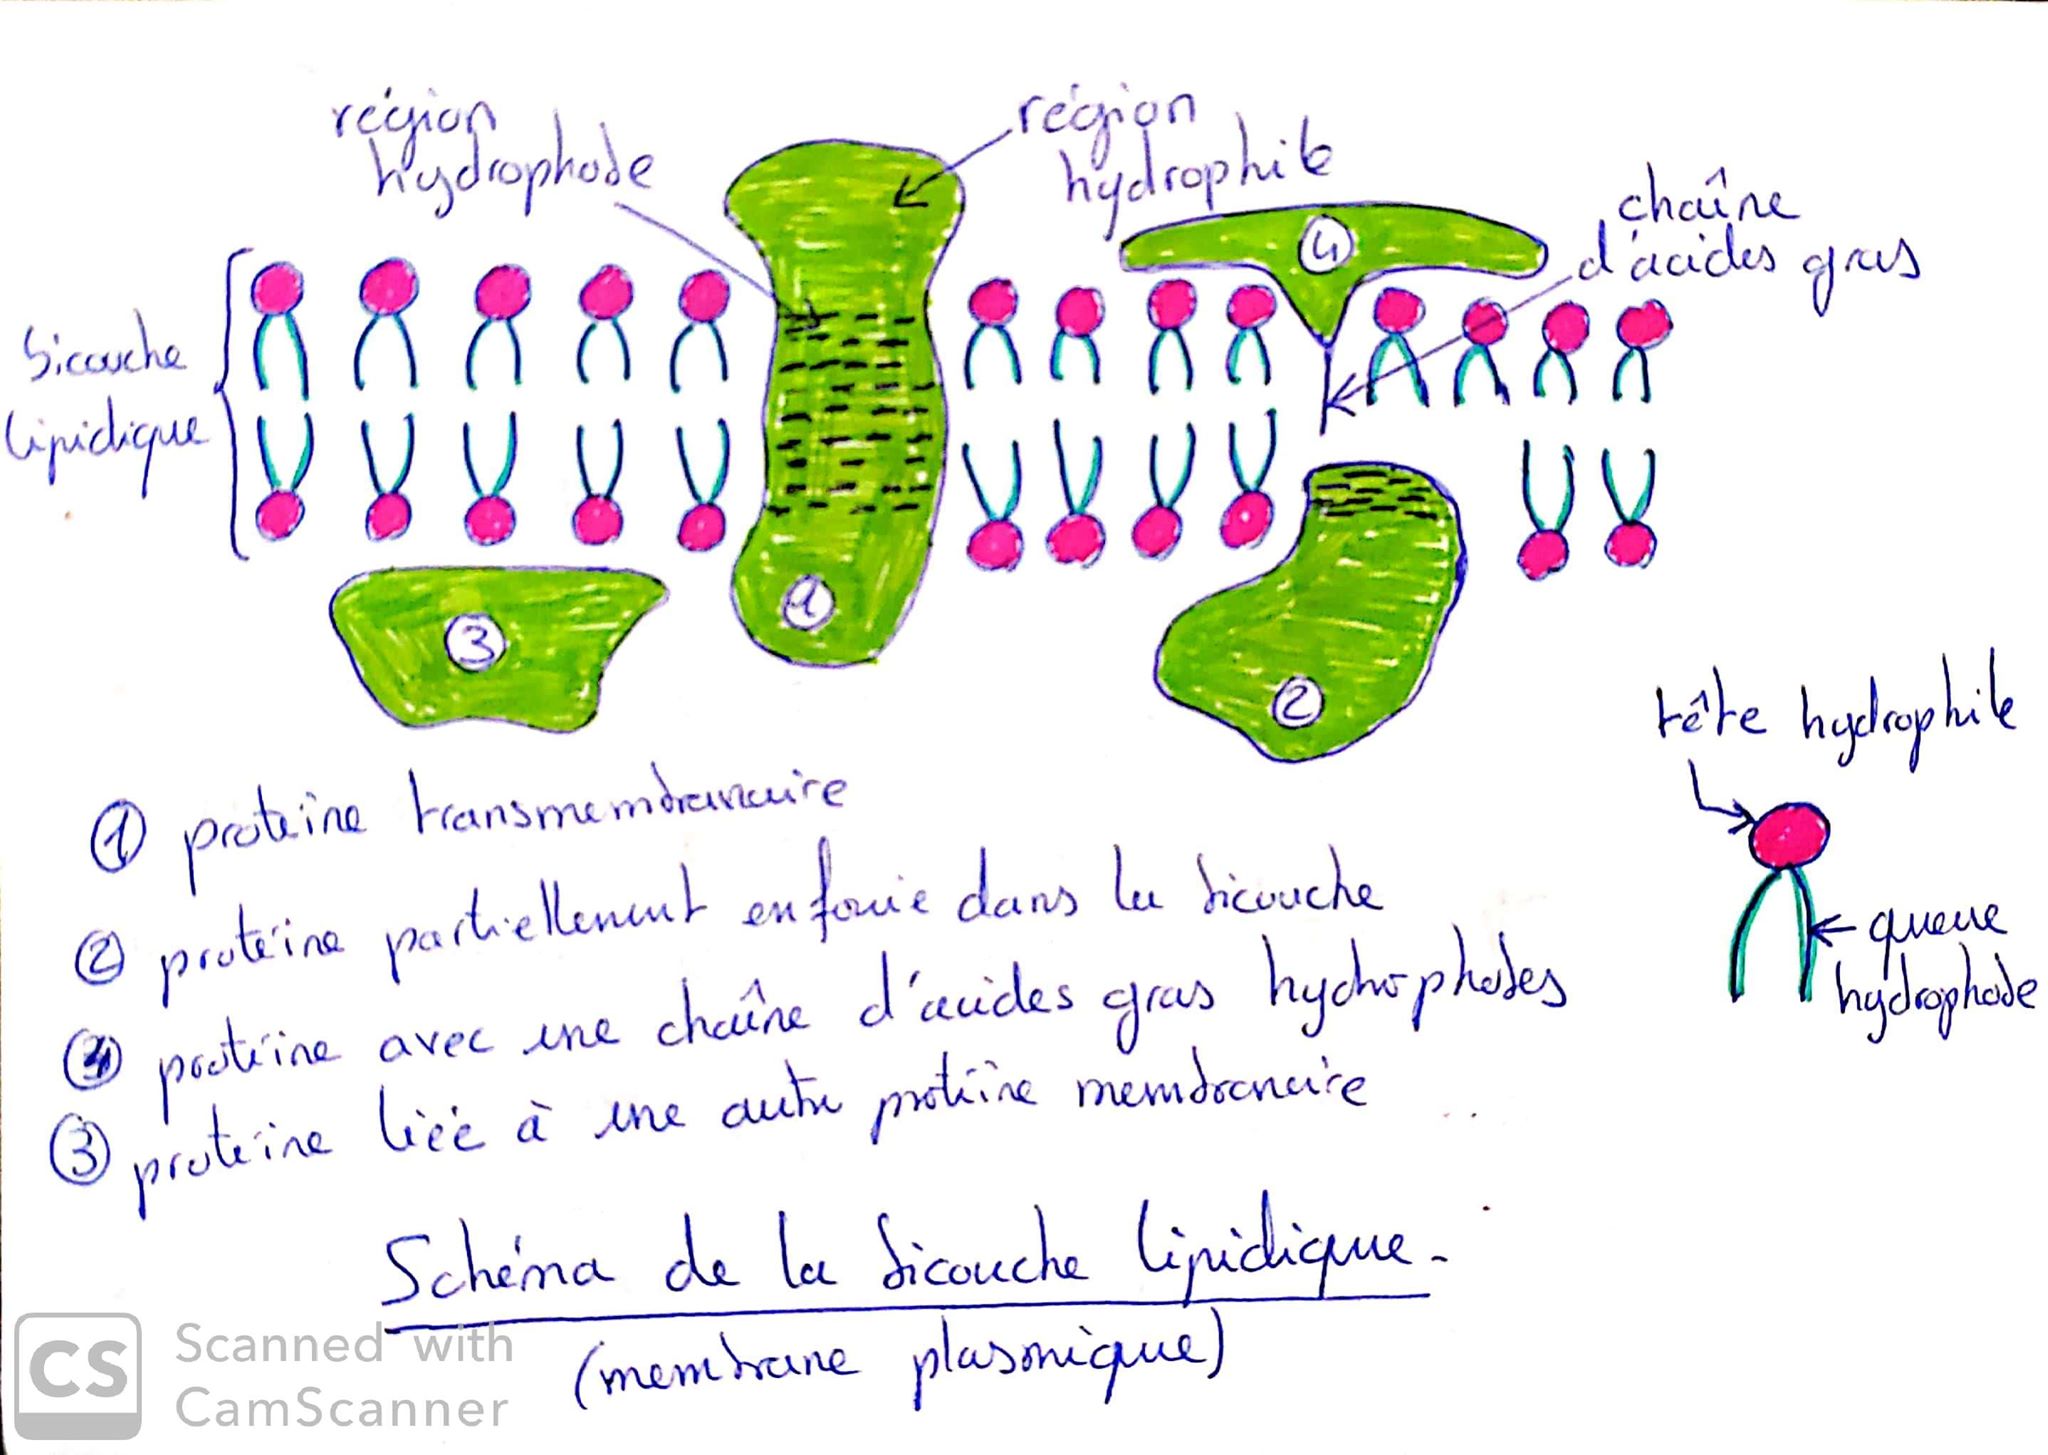 région
hydrophobe
région
hydrophile
chaîne
d'acides gras
bicouche
lipidique
4
3
1
2
tête hydrophile
queue
hydrophobe
① protéine transmembranaire
② protéine partiellement enfouie dans la bicouche
④ protéine avec une chaîne d'acides gras hydrophobes
③ protéine liée à une autre protéine membranaire
Schéma de la bicouche lipidique.
(membrane plasmique)
CS Scanned with
CamScanner